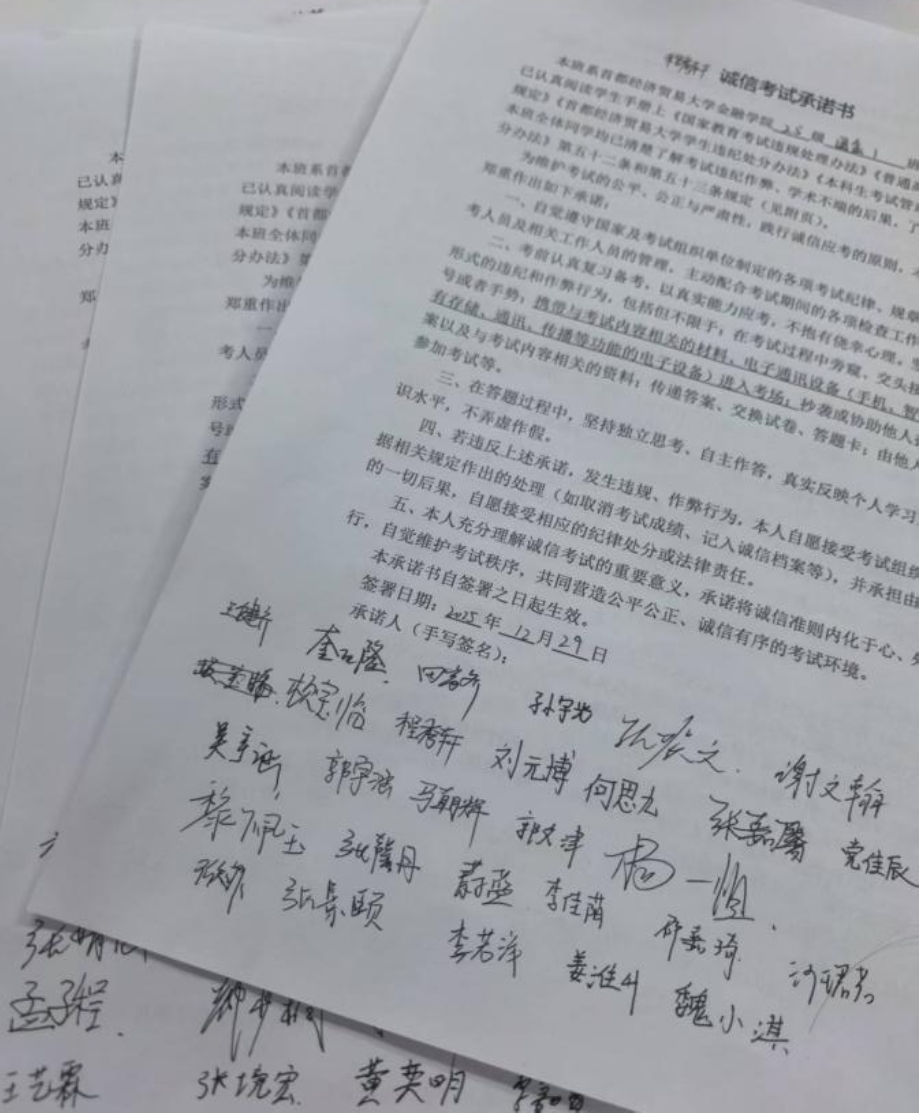 诚信考试承诺书
本班系首都经济贸易大学金融学院 25 级
已认真阅读学生手册上《国家教育考试违规处理办法》《普通
规定》《首都经济贸易大学学生违纪处分办法》《本科生考试管
本班全体同学均已清楚了解考试违纪作弊、学术不端的后果,了
分办法》第五十二条和第五十三条规定(见附页)。
为维护考试的公平、公正与严肃性,践行诚信应考的原则,
郑重作出如下承诺:
一、自觉遵守国家及考试组织单位制定的各项考试纪律、规章
考人员及相关工作人员的管理,主动配合考试期间的各项检查工作
二、考前认真复习备考,以真实能力应考,不抱有侥幸心理。
形式的违纪和作弊行为,包括但不限于:在考试过程中旁窥、交头接
号或者手势;携带与考试内容相关的材料、电子通讯设备(手机、智
有存储、通讯、传播等功能的电子设备)进入考场;抄袭或协助他人
案以及与考试内容相关的资料;传递答案、交换试卷、答题卡;由他人
参加考试等。
三、在答题过程中,坚持独立思考、自主作答,真实反映个人学习
识水平,不弄虚作假。
四、若违反上述承诺,发生违规、作弊行为,本人自愿接受考试组织
据相关规定作出的处理(如取消考试成绩、记入诚信档案等),并承担由
的一切后果,自愿接受相应的纪律处分或法律责任。
五、本人充分理解诚信考试的重要意义,承诺将诚信准则内化于心、外
行,自觉维护考试秩序,共同营造公平公正、诚信有序的考试环境。
本承诺书自签署之日起生效。
签署日期:2025年12月29日
承诺人(手写签名):
谢文翰
程秀轩 刘元博 何思
郭宇 马朝辉 郭文津 杨一 党佳辰
黎佩玉 张馨丹 李佳菌
张景颐 李若洋 姜淮 魏小淇
本
已认真
规定》
本班
分办
郑
本班系首都
已认真阅读学
规定》《首都
本班全体同
分办法》第
为维
郑重作出
一
考人员
形式
号
有
案
孟子程
王艺霖 张境宏 黄奕明